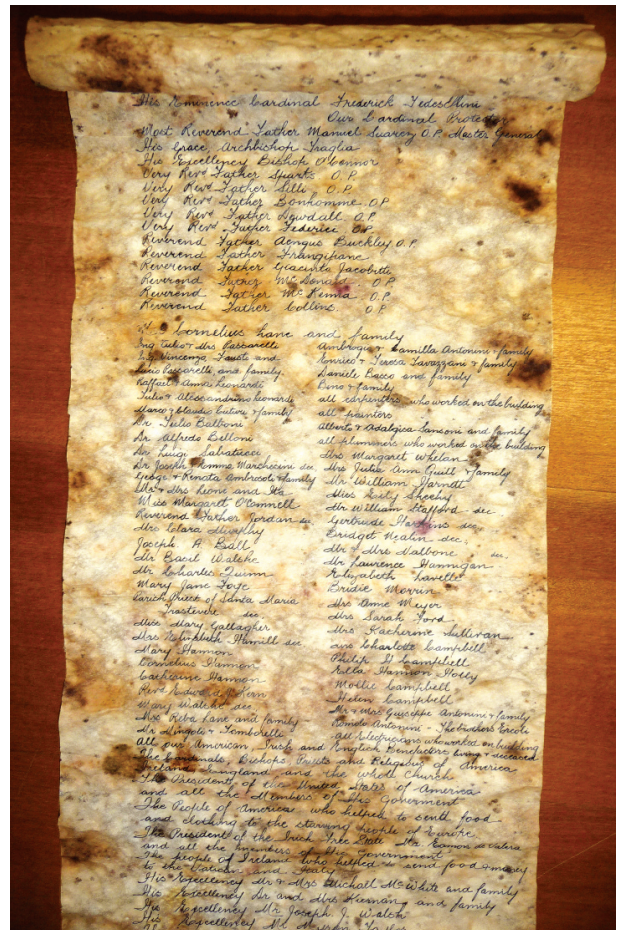 His Eminence Cardinal Frederick Tedeschini
Our Cardinal Protector
Most Reverend Father Manuel Suarez O.P. Master General
His Grace, Archbishop Traglia
His Excellency Bishop O'Connor
Very Revd Father Spiarts O.P.
Very Revd Father Silli O.P.
Very Revd Father Bonhomme O.P
Very Revd Father Dowdall O.P.
Very Revd Father Federici O.P
Reverend Father Aengus Buckley O.P.
Reverend Father Frangipane
Reverend Father Giacinto Jacobitti
Reverend Father McDonald O.P.
Reverend Father McKenna O.P.
Reverend Father Collins O.P.
Cornelius Lane and family
Ing Tulio & Mrs Passarelli
Vincenzo, Fausto and
Lucio Passarelli and family
Raffael & Anna Leonardi
Tulio & Alessandrina Leonardi
Marco & Claudio Cutiori & family
Dr. Tulio Balboni
Dr. Alfredo Belloni
Dr. Luigi Salvatucci
Dr Joseph & Momma Marchecini dec.
George & Renata Ambricoti & family
Mr & Mrs Leone and Ita
Miss Margaret O'Connell
Reverend Father Jordan dec
Mrs Clara Murphy
Joseph. A Ball
Mr Basil Walshe
Mr Charles Quinn
Mary Jane Foye
Parish Priest of Santa Maria
Trastevere dec
Miss Mary Gallagher
Mrs Hamill dec
Mary Hannon
Cornelius Hannon
Catherine Hannon
Revd Edward J. Kern
Mary Walshe dec
Mrs Reba Lane and family
Mr Dingoli & Tomborelli
Ambrogio & Camilla Antonini & family
Enrico & Teresa Tavazzani & family
Daniele Bacco and family
Beno & family
all carpenters who worked on the building
all painters
Alberto & Adalgica Sansoni and family
all plummers who worked on the building
Mrs Margaret Whelan
Mrs Julia Ann Quill & family
Mr William Jarnott
Miss Lesly Sheehy
Mr William Stafford dec
Gertrude Hopkins dec
Bridget Nealin dec
Mr & Mrs Malbone dec
Mr Laurence Hannigan
Elizabeth Lavelle
Bridie Morrin
Mrs Anne Meyer
Mrs Sarah Ford
Mrs Katherine Sullivan
Charlotte Campbell
Philip H Campbell
Ella Hannon Holly
Mollie Campbell
Helen Campbell
Mr & Mrs Guiseppe Antonini & family
Romolo Antonini - The brothers Ercoli
all Electricians who worked on building
All our American, Irish and English Benefactors living & deceased
The Cardinals, Bishops, Priests and Religious of America
Ireland, England, and the whole Church
The Presidents of the United States of America
and all the Members of his Government
The People of America who helped to send food
and clothing to the starving people of Europe
The President of the Irish Free State Mr Eamon de Valera
and all the members of his Government
The people of Ireland who helped to send food & money
to the Vatican and Italy
His Excellency Mr & Mrs Michall McWhite and family
His Excellency Dr and Mrs Kiernan, and family
His Excellency Mr Joseph J. Walsh
His Excellency Mr Myron